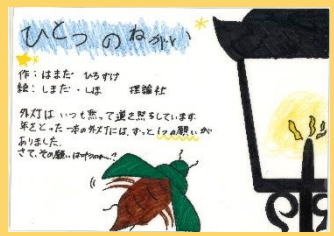 ひとつのねがい
作：はまだ ひろすけ
絵：しまだ・しほ 理論社
外灯は いつも黙って道を照らしています。
年をとった一本の外灯には、ずっと1つの願いが
ありました。
さて、その願いは